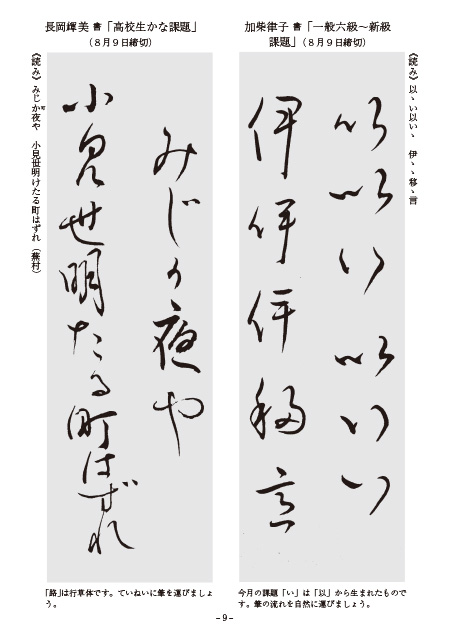 加柴律子 書「一般六級～新級
課題」（８月９日締切）
《読み》 以ゝい以いゝ　伊ゝゝ移ゝ言
以以い以いい
伊伊伊移言
今月の課題「い」は「以」から生まれたもので
す。筆の流れを自然に運びましょう。
長岡輝美 書「高校生かな課題」
（８月９日締切）
《読み》 みじか夜や　小見世明けたる町はずれ（蕪村）
みじか夜や
小見世明たる町はずれ
「路」は行草体です。ていねいに筆を運びましょ
う。
- 9 -